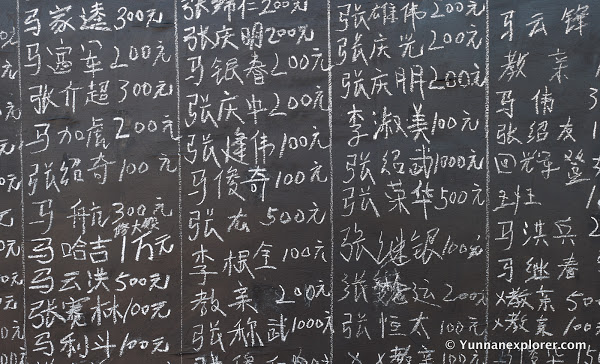 马家逵300元
马富军200元
张介超300元
马加虎200元
张绍奇100元
马航300元
修大殿
马哈吉1万元
马云洪500元
张赛林100元
马利斗100元
张锦仁200元
张庆明200元
马银春200元
张庆中200元
张建伟100元
马俊奇100元
张龙500元
李根全100元
教亲200元
张称武1000元
张雄伟200元
张庆光200元
张庆明200元
李淑美100元
张绍武1000元
张荣华500元
张继银100元
张 运200元
张恒太100元
马云锋
教亲
马伟
张绍友
回光军
马洪兵
马继春
教亲 500
教亲 100元
© Yunnanexplorer.com